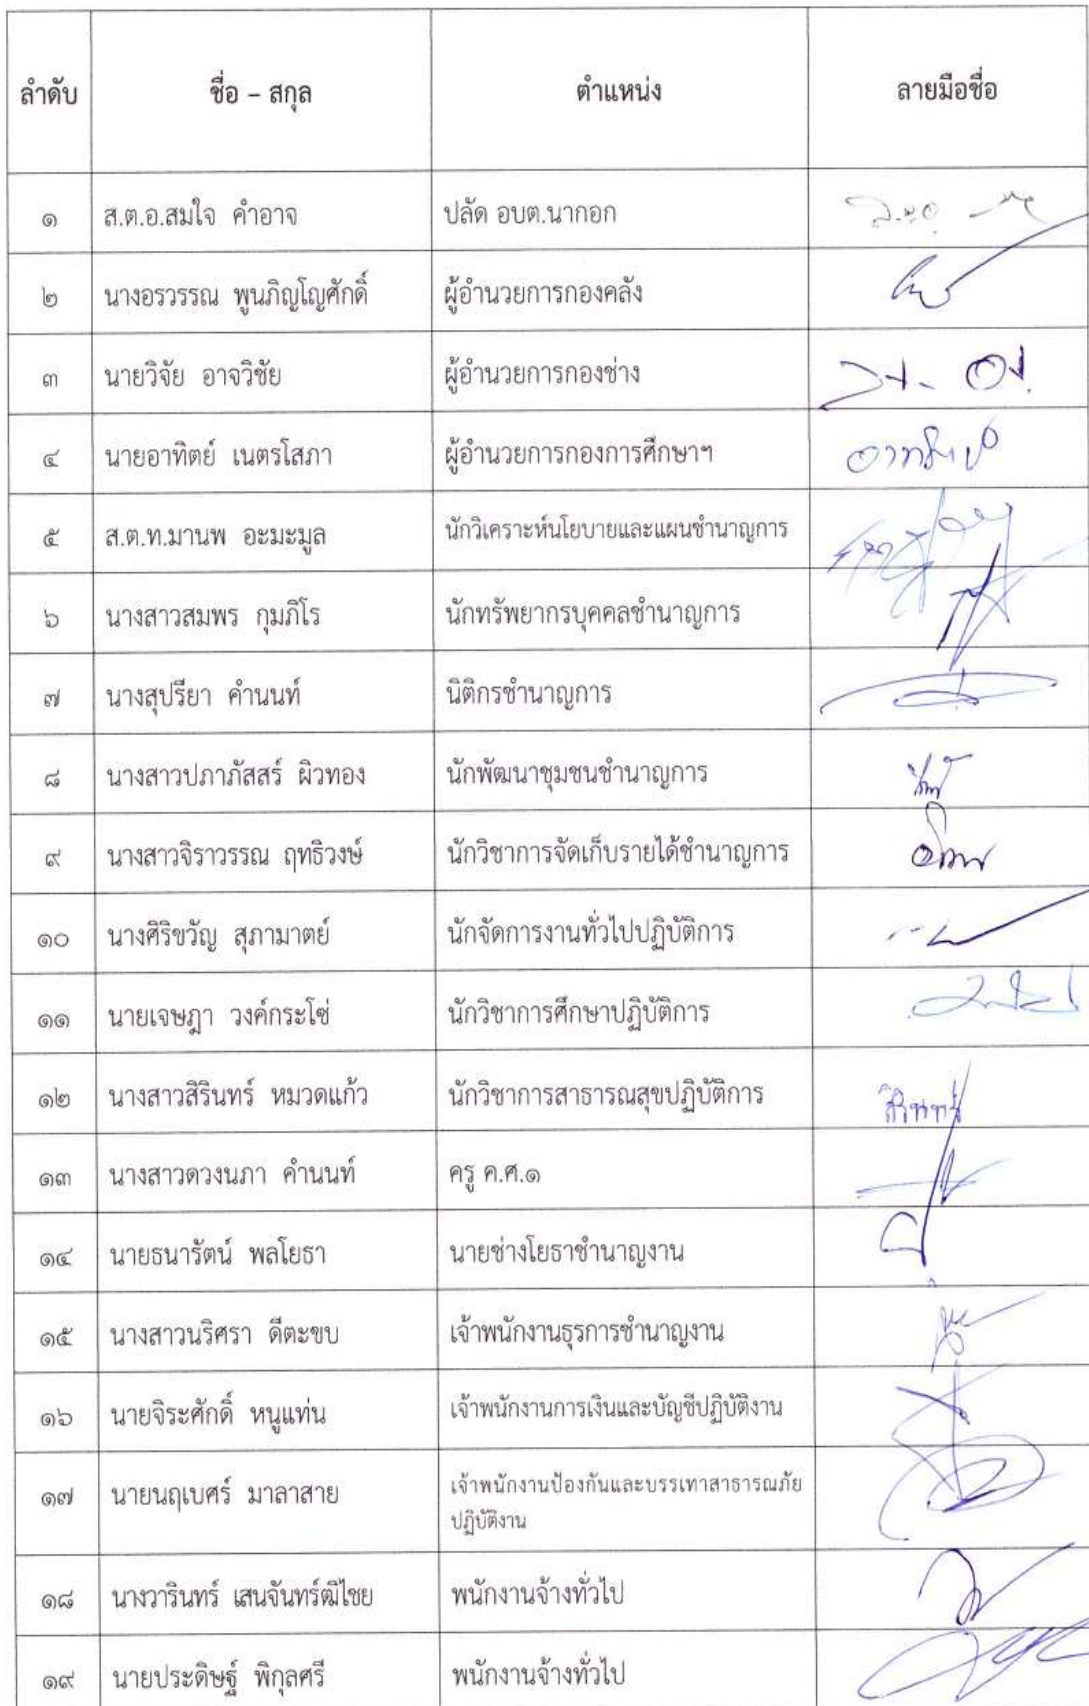 ลำดับ ชื่อ – สกุล ตำแหน่ง ลายมือชื่อ
๑ ส.ต.อ.สมใจ คำอาจ ปลัด อบต.นากอก
๒ นางอรวรรณ พูนภิญโญศักดิ์ ผู้อำนวยการกองคลัง
๓ นายวิจัย อาจวิชัย ผู้อำนวยการกองช่าง
๔ นายอาทิตย์ เนตรโสภา ผู้อำนวยการกองการศึกษาฯ
๕ ส.ต.ท.มานพ อะมะมูล นักวิเคราะห์นโยบายและแผนชำนาญการ
๖ นางสาวสมพร กุมภิโร นักทรัพยากรบุคคลชำนาญการ
๗ นางสุปรียา คำนนท์ นิติกรชำนาญการ
๘ นางสาวปภาภัสสร์ ผิวทอง นักพัฒนาชุมชนชำนาญการ
๙ นางสาวจิราวรรณ ฤทธิวงษ์ นักวิชาการจัดเก็บรายได้ชำนาญการ
๑๐ นางศิริขวัญ สุภามาตย์ นักจัดการงานทั่วไปปฏิบัติการ
๑๑ นายเจษฎา วงค์กระโซ่ นักวิชาการศึกษาปฏิบัติการ
๑๒ นางสาวสิรินทร์ หมวดแก้ว นักวิชาการสาธารณสุขปฏิบัติการ สิรินทร์
๑๓ นางสาวดวงนภา คำนนท์ ครู ค.ศ.๑
๑๔ นายธนารัตน์ พลโยธา นายช่างโยธาชำนาญงาน
๑๕ นางสาวนริศรา ดีตะขบ เจ้าพนักงานธุรการชำนาญงาน
๑๖ นายจิระศักดิ์ หนูแท่น เจ้าพนักงานการเงินและบัญชีปฏิบัติงาน
๑๗ นายนฤเบศร์ มาลาสาย เจ้าพนักงานป้องกันและบรรเทาสาธารณภัย
ปฏิบัติงาน
๑๘ นางวารินทร์ เสนจันทร์ฒิไชย พนักงานจ้างทั่วไป
๑๙ นายประดิษฐ์ พิกุลศรี พนักงานจ้างทั่วไป